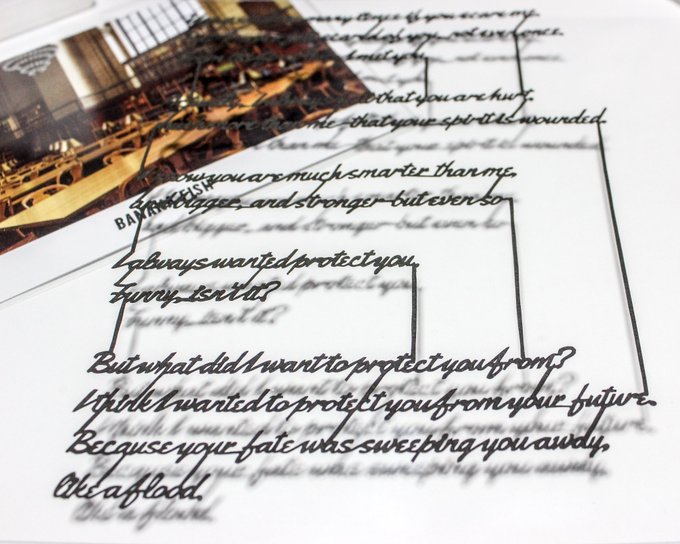 if you scare me.
scared of you, not even once.
I met you
that you are hurt.
me-that your spirit is wounded.
know you are much smarter than me,
bigger, and stronger-but even so
BANANA FISH
I always wanted protect you.
Funny, isn't it?
But what did I want to protect you from?
I think I wanted to protect you from your future.
Because your fate was sweeping you away,
like a flood.